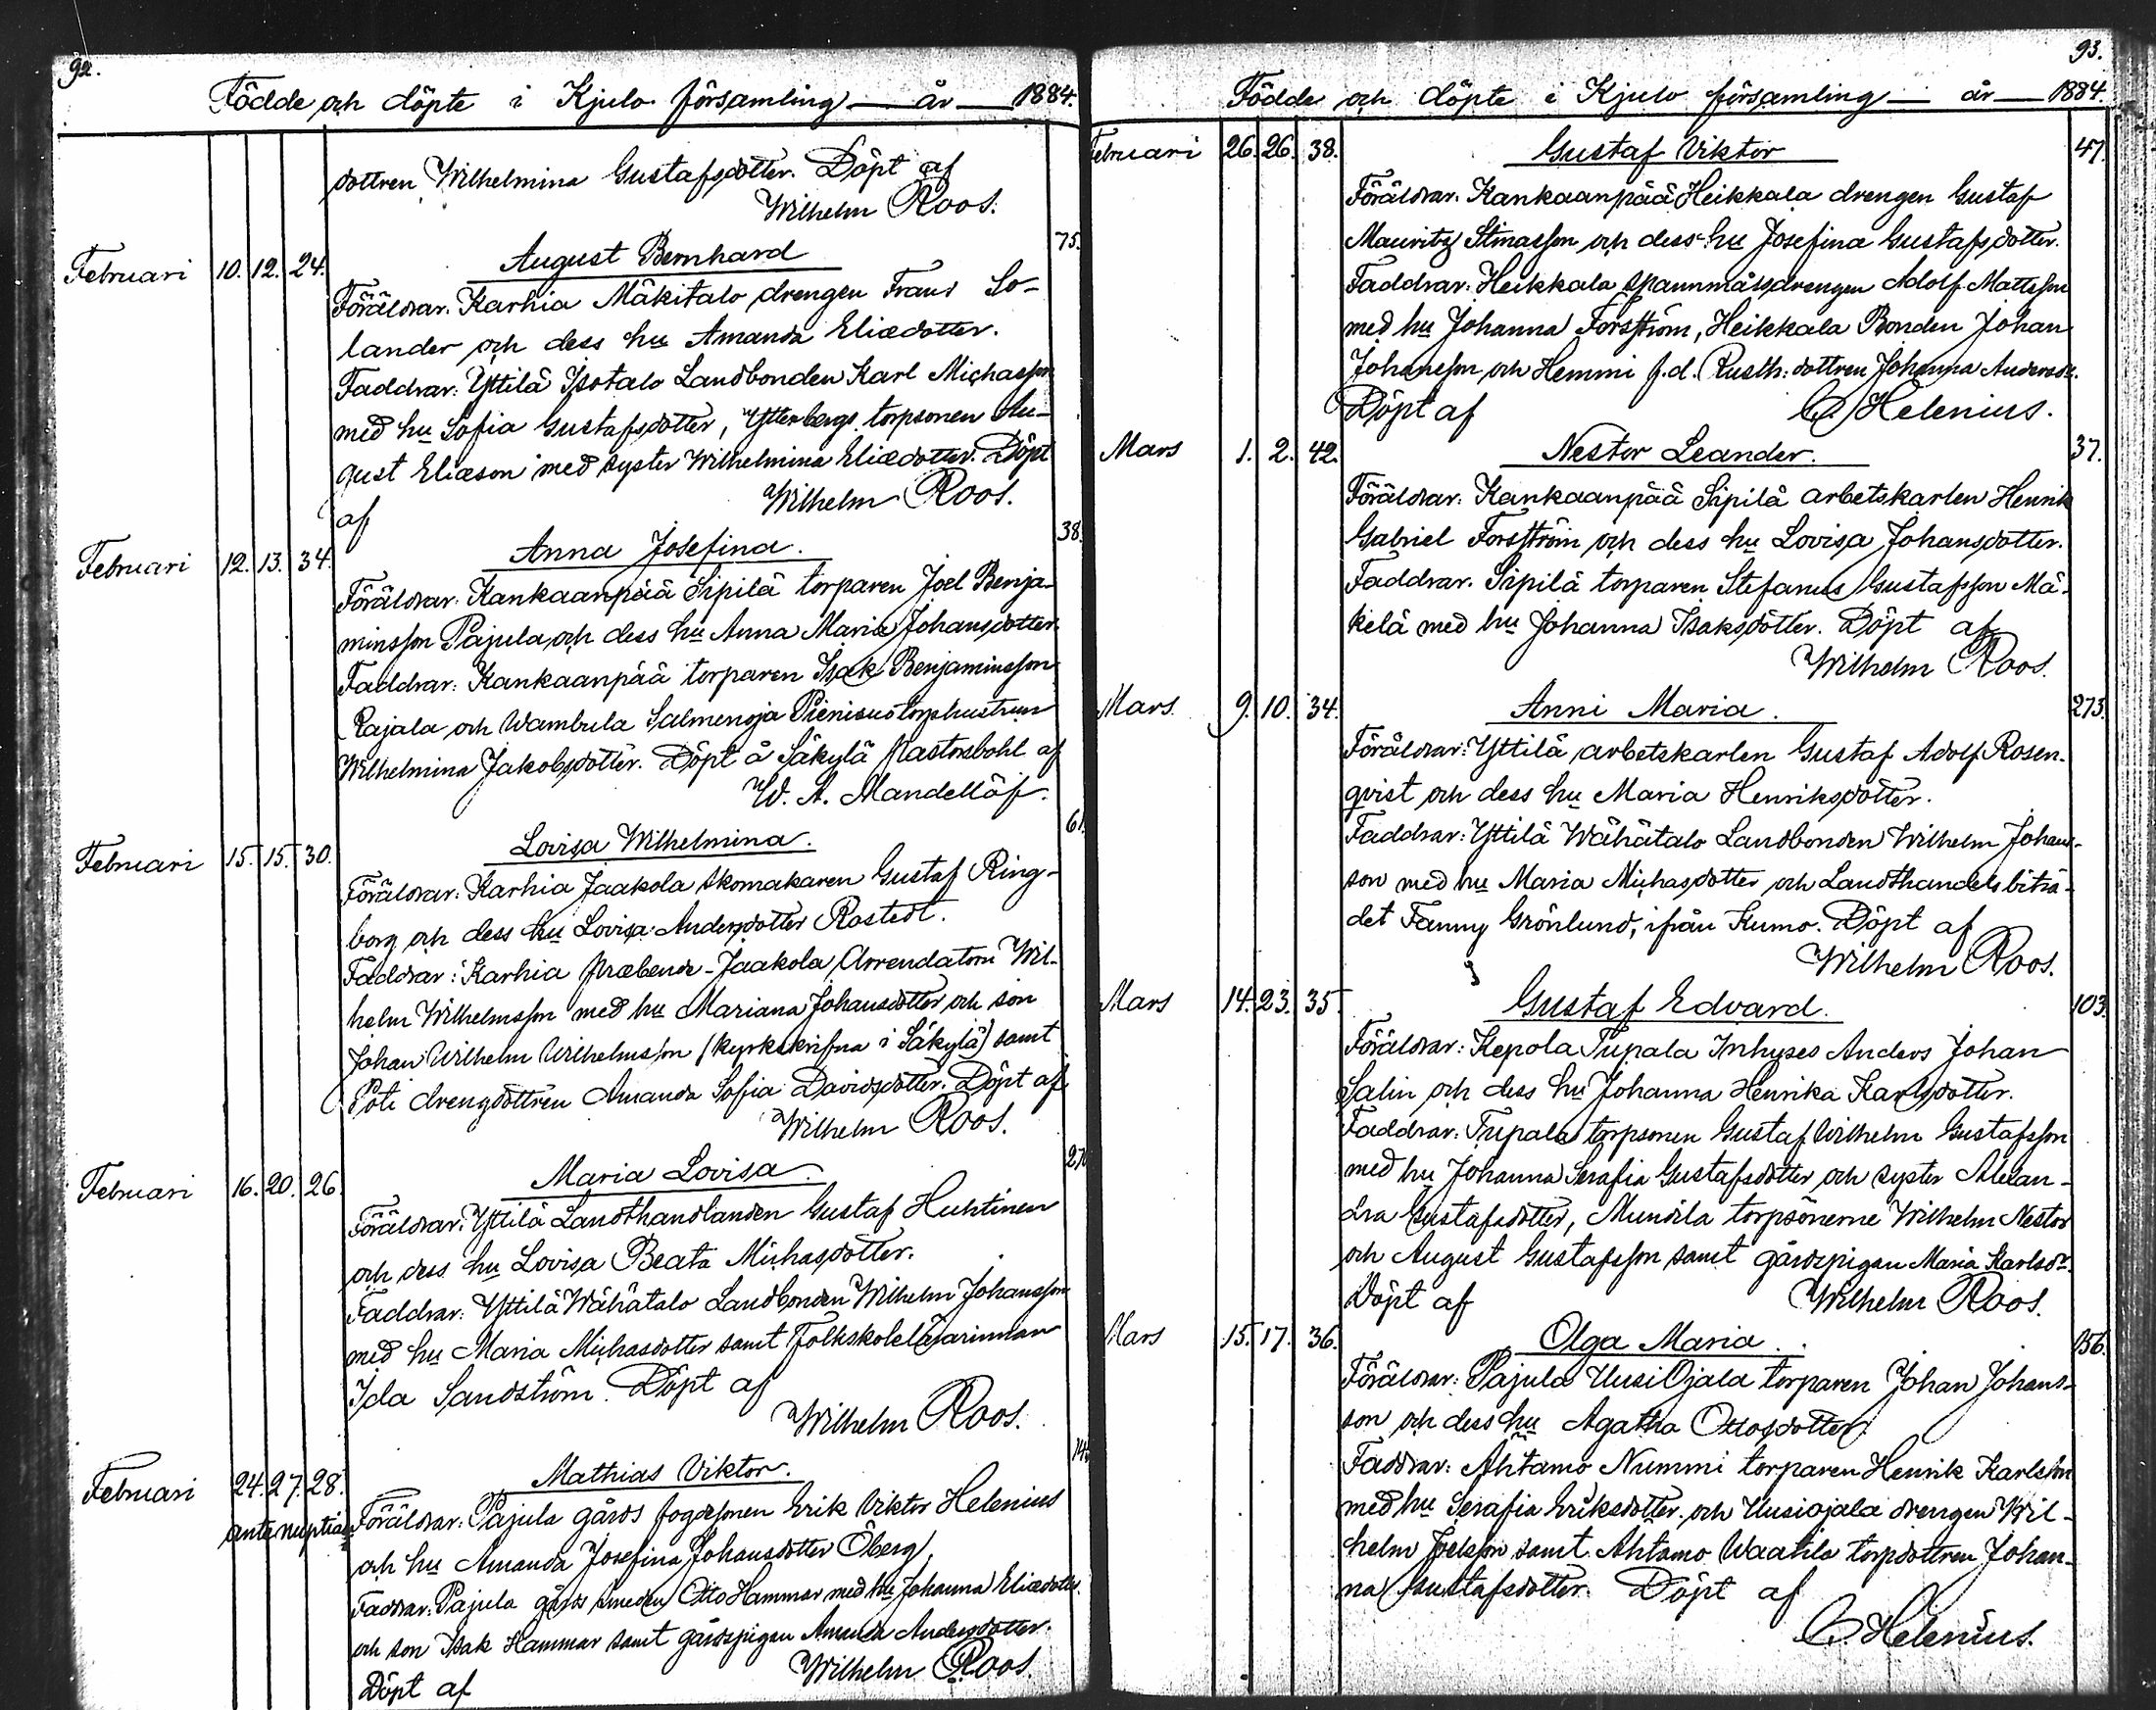 92.
Födde och döpte i Kjulo församling — år — 1884.
dottren Wilhelmina Gustafsdotter. Döpt af
Wilhelm Roos.
Februari 10. 12. 24. August Bernhard 75.
Föräldrar. Karhia Mäkitalo drengen Frans So-
lander och dess hu Amanda Eliædotter.
Faddrar: Yttilä Isotalo Landbonden Karl Michasson
med hu Sofia Gustafsdotter, Ytterbergs torpsonen Au-
gust Eliæson med syster Wilhelmina Eliædotter. Döpt
af Wilhelm Roos.
Februari 12. 13. 34. Anna Josefina. 38.
Föräldrar. Kankaanpää Sipilä torparen Joel Benja-
minsson Pajula och dess hu Anna Maria Johansdotter.
Faddrar: Kankaanpää torparen Isak Benjaminsson
Rajala och Wambula Salmenoja Pienisuo torphustrun
Wilhelmina Jakobsdotter. Döpt å Säkylä Pastorsbohl af
W. A. Mandellöf.
Februari 15. 15. 30. Lovisa Wilhelmina. 61.
Föräldrar: Karhia Jaakola skomakaren Gustaf Ring-
borg och dess hu Lovisa Andersdotter Rostedt.
Faddrar: Karhia præbende-Jaakola Arrendatorn Wil-
helm Wilhelmsson med hu Mariana Johansdotter och son
Johan Wilhelm Wilhelmsson (kyrkskrifna i Säkylä) samt
Poti drengdottren Amanda Sofia Davidsdotter. Döpt af
Wilhelm Roos.
Februari 16. 20. 26. Maria Lovisa. 27
Föräldrar: Yttilä Landthandlanden Gustaf Huhtinen
och dess hu Lovisa Beata Michasdotter.
Faddrar: Yttilä Wähätalo Landbonden Wilhelm Johansson
med hu Maria Michasdotter samt Folkskolelärarinnan
Ida Sandström. Döpt af
Wilhelm Roos.
Februari 24. 27. 28. Mathias Viktor. 14
ante nuptias Föräldrar: Pajula gårds fogdesonen Erik Viktor Helenius
och hu Amanda Josefina Johansdotter Öberg.
Faddrar: Pajula gårds smeden Otto Hammar med hu Johanna Eliædotter.
och son Isak Hammar samt gårdspigan Amanda Andersdotter.
Döpt af Wilhelm Roos.
93.
Födde och döpte i Kjulo församling — år — 1884.
Februari 26. 26. 38. Gustaf Viktor 47.
Föräldrar. Kankaanpää Heikkala drengen Gustaf
Mauritz Stinasson och dess hu Josefina Gustafsdotter.
Faddrar: Heikkala spannmålsdrengen Adolf Mattsson
med hu Johanna Forsström, Heikkala Bonden Johan
Johansson och Hemmi f.d. Rusth: dottren Johanna Andersdr.
Döpt af C Helenius.
Mars 1. 2. 42. Nestor Leander. 37.
Föräldrar: Kankaanpää Sipilä arbetskarlen Henrik
Gabriel Forsström och dess hu Lovisa Johansdotter.
Faddrar. Sipilä torparen Stefanus Gustafsson Mä-
kelä med hu Johanna Isaksdotter. Döpt af
Wilhelm Roos.
Mars. 9. 10. 34. Anni Maria. 273.
Föräldrar: Yttilä arbetskarlen Gustaf Adolf Rosen-
qvist och dess hu Maria Henriksdotter.
Faddrar: Yttilä Wähätalo Landbonden Wilhelm Johans-
son med hu Maria Michasdotter och Landthandelsbiträ-
det Fanny Grönlund, ifrån Kumo. Döpt af
Wilhelm Roos.
Mars 14. 23. 35. Gustaf Edvard. 103.
Föräldrar: Kepola Tupala Inhyses Anders Johan
Salin och dess hu Johanna Henrika Karlsdotter.
Faddrar: Tupala torpsonen Gustaf Wilhelm Gustafsson
med hu Johanna Serafia Gustafsdotter och syster Alexan-
dra Gustafsdotter, Mundila torpsönerne Wilhelm Nestor
och August Gustafsson samt gårdspigan Maria Karlsdr.
Döpt af Wilhelm Roos.
Mars 15. 17. 36. Olga Maria. 156.
Föräldrar: Pajula UusiOjala torparen Johan Johans-
son och dess hu Agatha Ottosdotter.
Faddrar: Ahtamo Nummi torparen Henrik Karlsson
med hu Serafia Eriksdotter. och Uusiojala drengen Wil-
helm Joelsson samt Ahtamo Waahila torpdottren Johan-
na Gustafsdotter. Döpt af
C. Helenius.